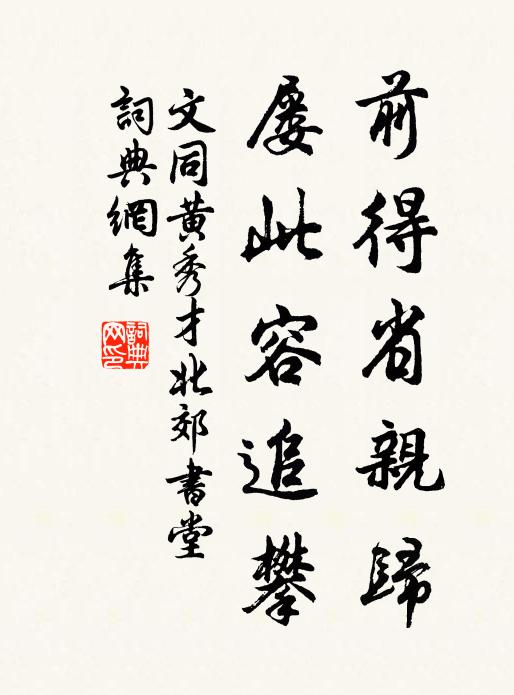 前得省親歸
屡此容追攀
文同黄秀才北郊書堂
詞典網集
詞典網印